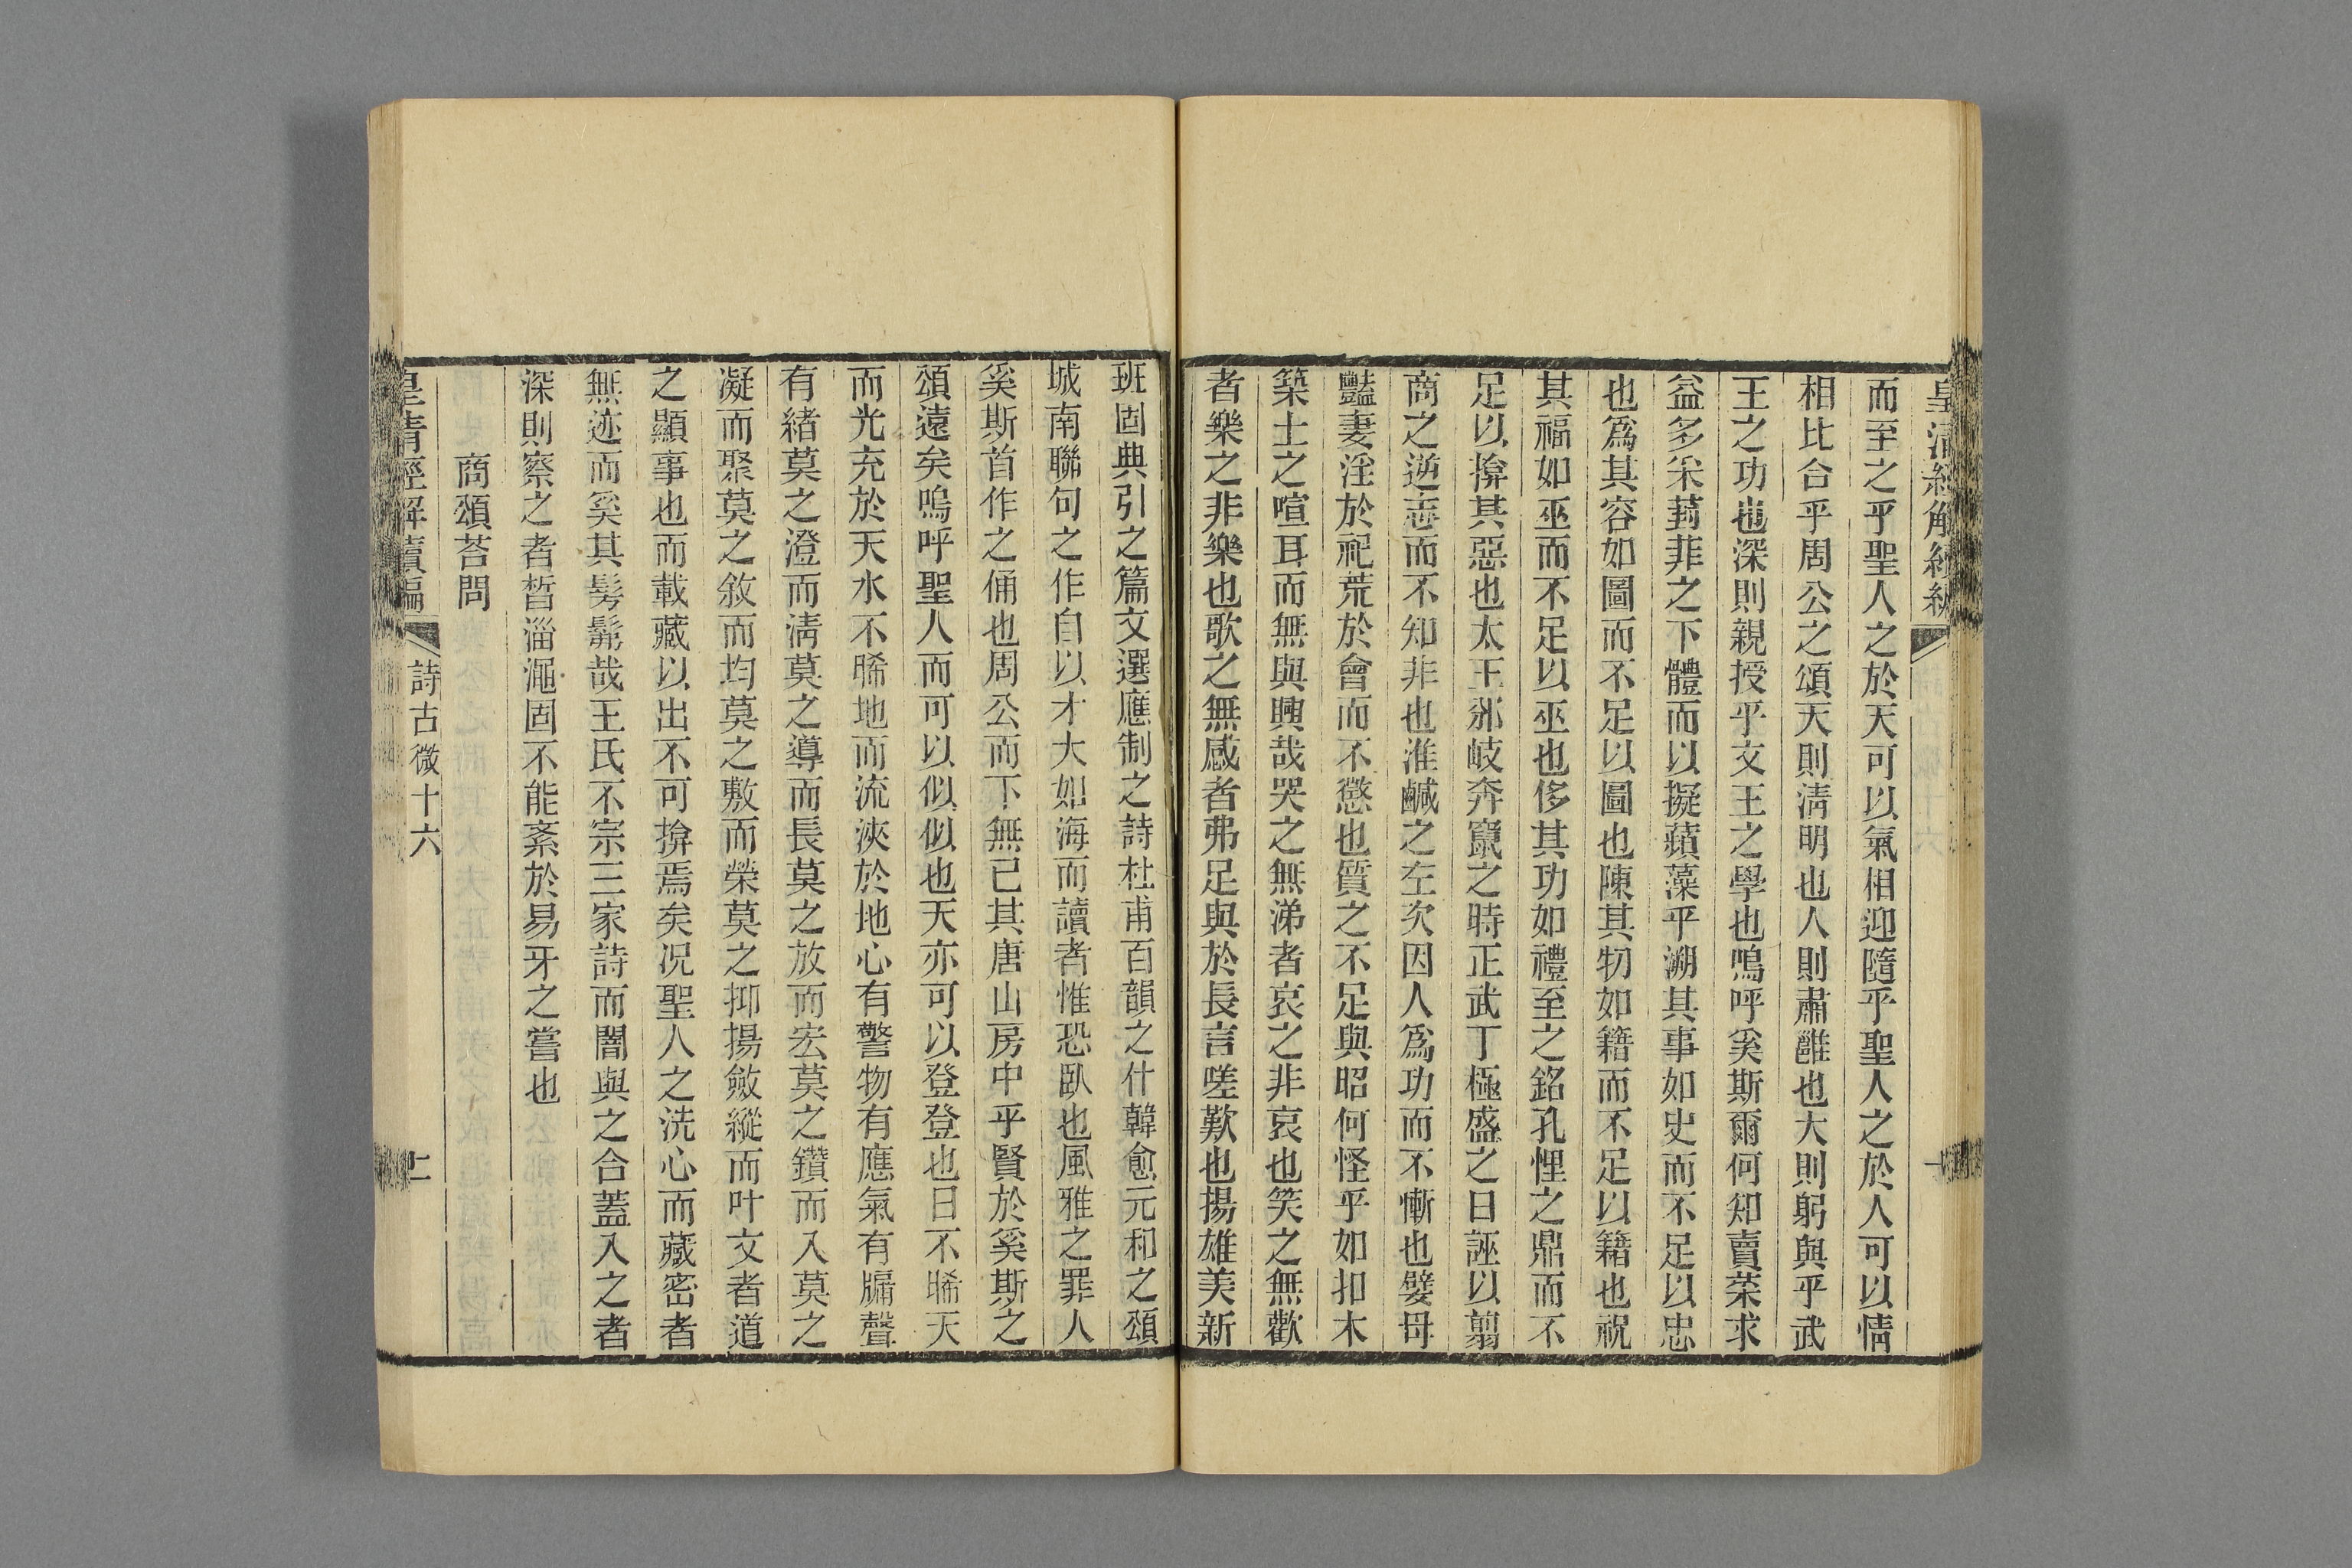 皇清經解續編
而至之乎聖人之於天可以氣相迎隨乎聖人之於人可以情
相比合乎周公之頌天則淸明也人則肅雝也大則躬與乎武
王之功也深則親授乎文王之學也嗚呼奚斯爾何知賣菜求
益多采葑菲之下體而以擬蘋藻乎溯其事如史而不足以忠
也爲其容如圖而不足以圖也陳其物如籍而不足以籍也祝
其福如巫而不足以巫也侈其功如禮至之銘孔悝之鼎而不
足以揜其惡也太王邠岐奔竄之時正武丁極盛之日誣以翦
商之逆志而不知非也淮鹹之左次因人爲功而不慚也嬖母
豔妻淫於祀荒於會而不懲也質之不足與昭何怪乎如扣木
築土之喧耳而無與興哉哭之無涕者哀之非哀也笑之無歡
者樂之非樂也歌之無感者弗足與於長言嗟歎也揚雄美新
班固典引之篇文選應制之詩杜甫百韻之什韓愈元和之頌
城南聯句之作自以才大如海而讀者惟恐臥也風雅之罪人
奚斯首作之俑也周公而下無已其唐山房中乎賢於奚斯之
頌遠矣嗚呼聖人而可以似似也天亦可以登登也日不睎天
而光充於天水不睎地而流浹於地心有警物有應氣有牖聲
有緒莫之澄而淸莫之導而長莫之放而宏莫之鑽而入莫之
凝而聚莫之敘而均莫之敷而榮莫之抑揚斂縱而叶文者道
之顯事也而載藏以出不可揜焉矣况聖人之洗心而藏密者
無迹而奚其髣髴哉王氏不宗三家詩而闇與之合蓋入之者
深則察之者晳淄澠固不能紊於易牙之嘗也
商頌荅問
皇清經解續編
詩古微十六